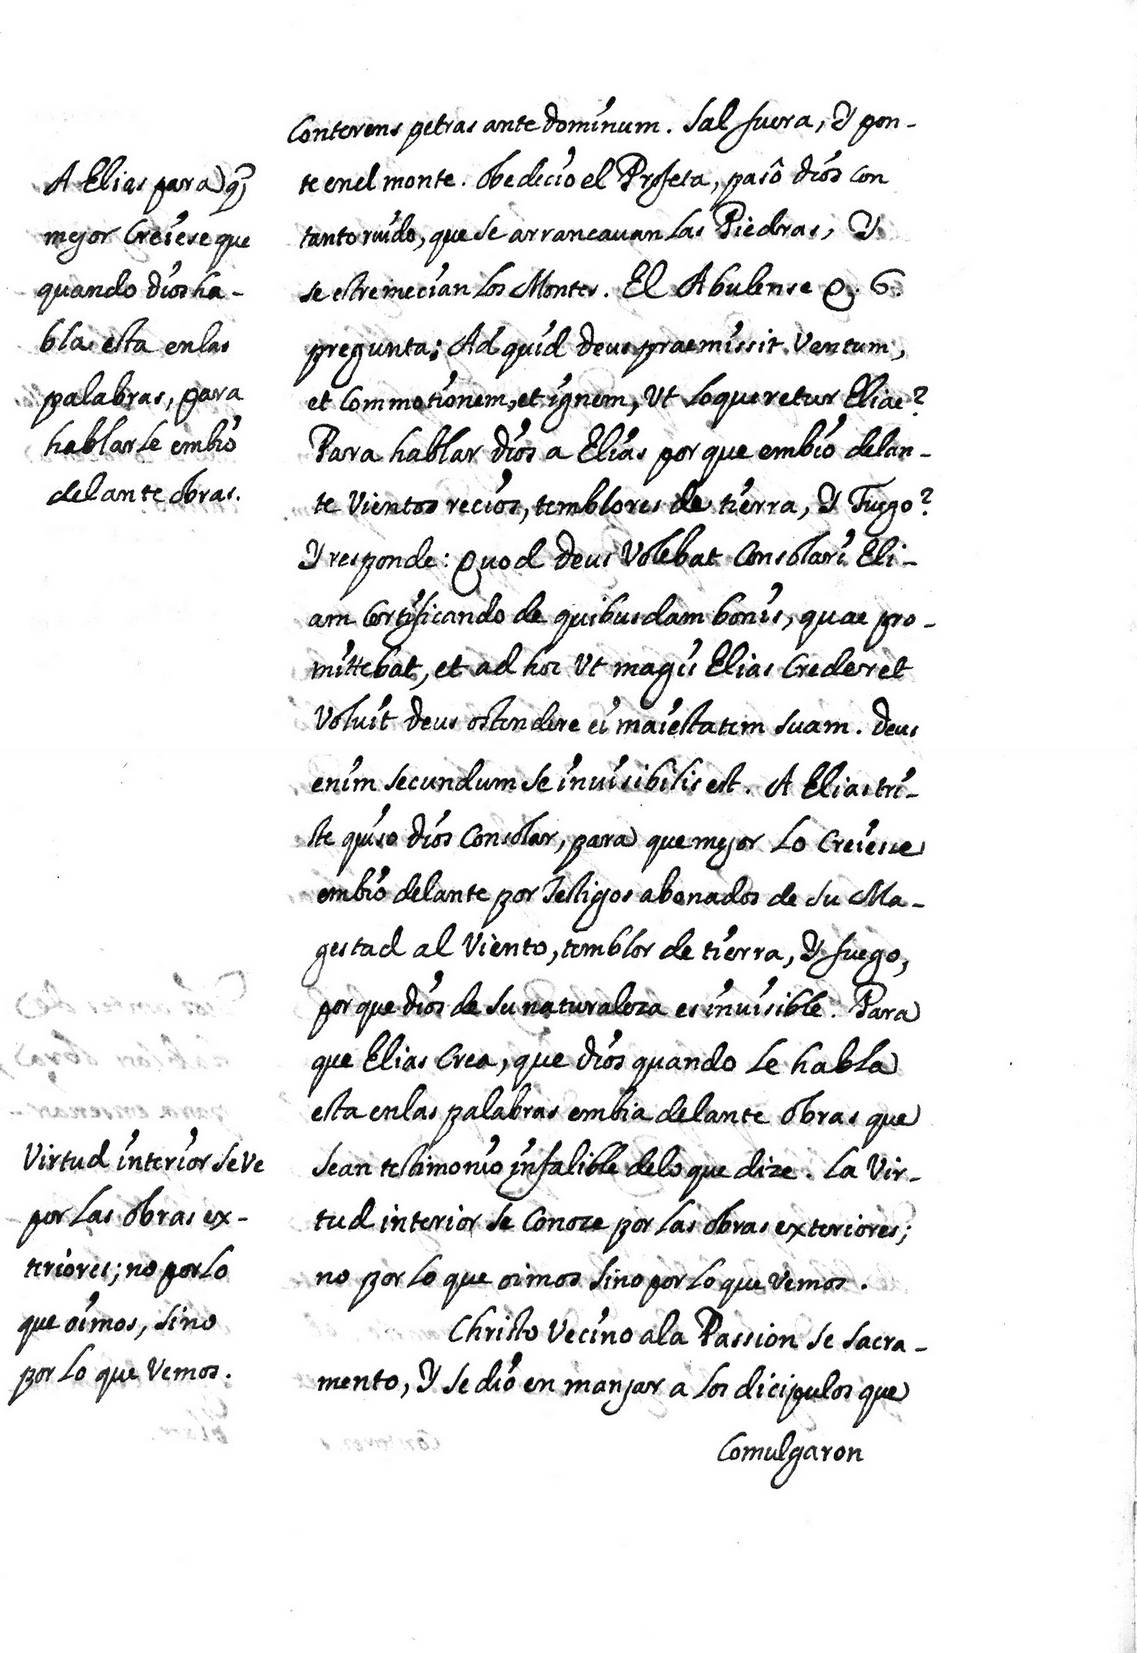 Conterens petras ante dominum. Sal fuera, Y pon-
te enel monte. Obedecio el Profeta, pasò dios con
tanto ruido, que se arrancauan las Piedras, Y
se estremecian los Montes. El Abulense Q. 6.
pregunta: Ad quid deus praemissit Ventum,
et Commotionem, et ignem, Ut loqueretur Eliae?
Para hablar dios a Elias por que embio delan-
te Vientos recios, temblores de tierra, Y Fuego?
Y responde: Quod deus Volebat Consolari Eli-
am Certificando de quibusdam bonis, quae pro-
mittebat, et ad hoc Ut magis Elias Crederet
Voluit deus ostendere ei maiestatem suam. deus
enim secundum se inuisibilis est. A Elias tri-
ste quiso dios Consolar, para que mejor lo Creiesse
embio delante por Testigos abonados de su Ma-
gestad al Viento, temblor de tierra, Y fuego,
porque dios de su naturaleza es inuisible. Para
que Elias Crea, que dios quando le habla
esta enlas palabras embia delante obras que
sean testimonio infalible delo que dize. La Vir-
tud interior se Conoze por las obras exteriores;
no por lo que oimos sino por lo que Vemos.
Christo Vecino ala Passion se sacra-
mento, Y se dio en manjar a los dicipulos que
Comulgaron
A Elias para q
mejor Creiese que
quando dios ha-
bla esta enlas
palabras, para
hablarle embio
delante obras.
Virtud interior se Ve
por las obras ex-
teriores; no por lo
que oimos, sino
por lo que Vemos.